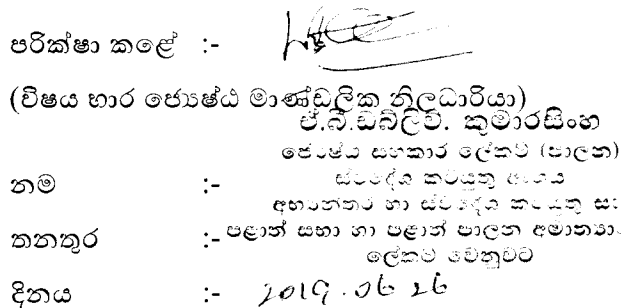 පරික්ෂා කළේ :-
(විෂය භාර ජ්‍යෙෂ්ඨ මාණ්ඩලික නිලධාරියා)
ඒ.බී.ඩබ්ලිව්. කුමාරසිංහ
ජ්‍යෙෂ්ඨ සහකාර ලේකම් (පාලන)
නම :- ස්වදේශ කටයුතු අංශය
අභ්‍යන්තර හා ස්වදේශ කටයුතු සහ
තනතුර :- පළාත් සභා හා පළාත් පාලන අමාත්‍යාං
ලේකම් වෙනුවට
දිනය :- 2019.06 26